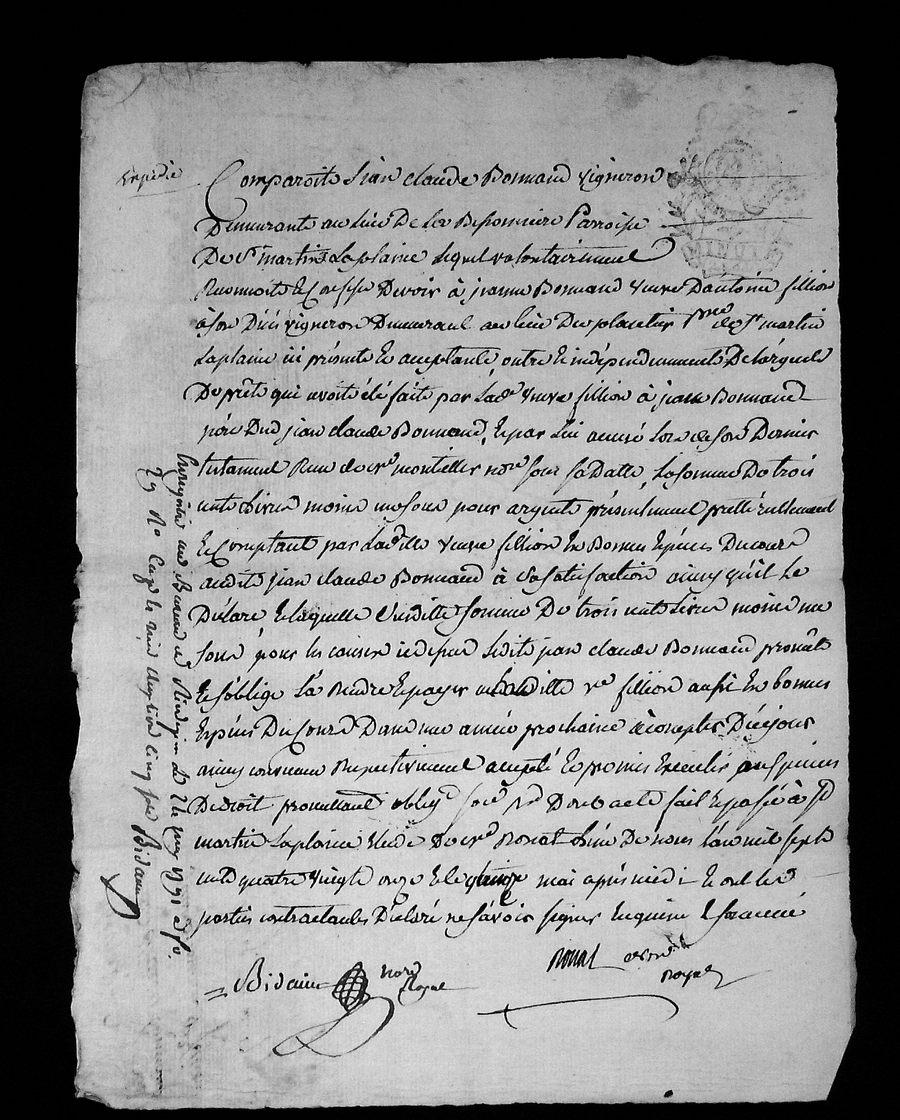 Expédié
Comparoit Jean claude Bonnand vigneron
Demeurant au lieu De la Bessonniere Parroisse
De st martin Laplaine Lequel volontairement
Reconnoit et Confesse Devoir à jeanne Bonnand veuve Dantoine fillion
a son Déces vigneron Demeurant au lieu Des plancties psse de st martin
Laplaine ici présente et acceptante, outre et indépendemment De Largent
De prêt qui avoit été fait par Lade veuve fillion à jean Bonnand
père Dud jean claude Bonnand, et par lui avoué Lors de son Dernier
testament Reçu de me montellier nore sous sa Datte, La somme De trois
cent Livres moins un sous pour argent présentement pretté réellement
et Comptant par Ladite veuve fillion en Bonnes Espèces Du cours
audit jean claude Bonnand à sa satisfaction ainsy qu'il Le
Déclare et laquelle susditte somme De trois cent Livres moins un
sous pour les causes cy dessus Ledit jean claude Bonnand promet
et s'oblige La Rendre et payer à Laditte ve fillion aussi en bonnes
Espèces Du Cours Dans une année prochaine à compter De ce jour
ainsy convenu Respectivement accepté et promis Executer aux peines
De Droit promettant oblig. sous. rd Dont acte fait et passé à st
martin Laplaine Etude De me Ronat L'un De nous L'an mil sept
cent quatre vingt onze et le quinze mai après midi et ont les
parties contractantes Déclaré ne savoir signer Enquises et sommé
Bidaun nore Royal
Ronat
Royal
Enregistré au Bureau de Rivedegier Le 21e may 1791 et fo.
79 Ro Case le reçu cinq sols Bidaun